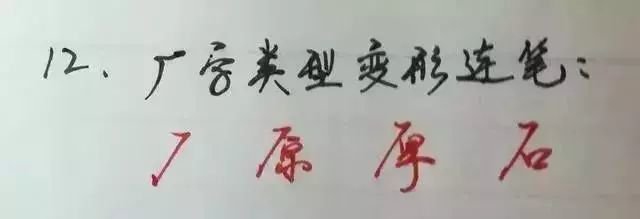 12、厂字类型变形连笔：
厂 原 厚 石